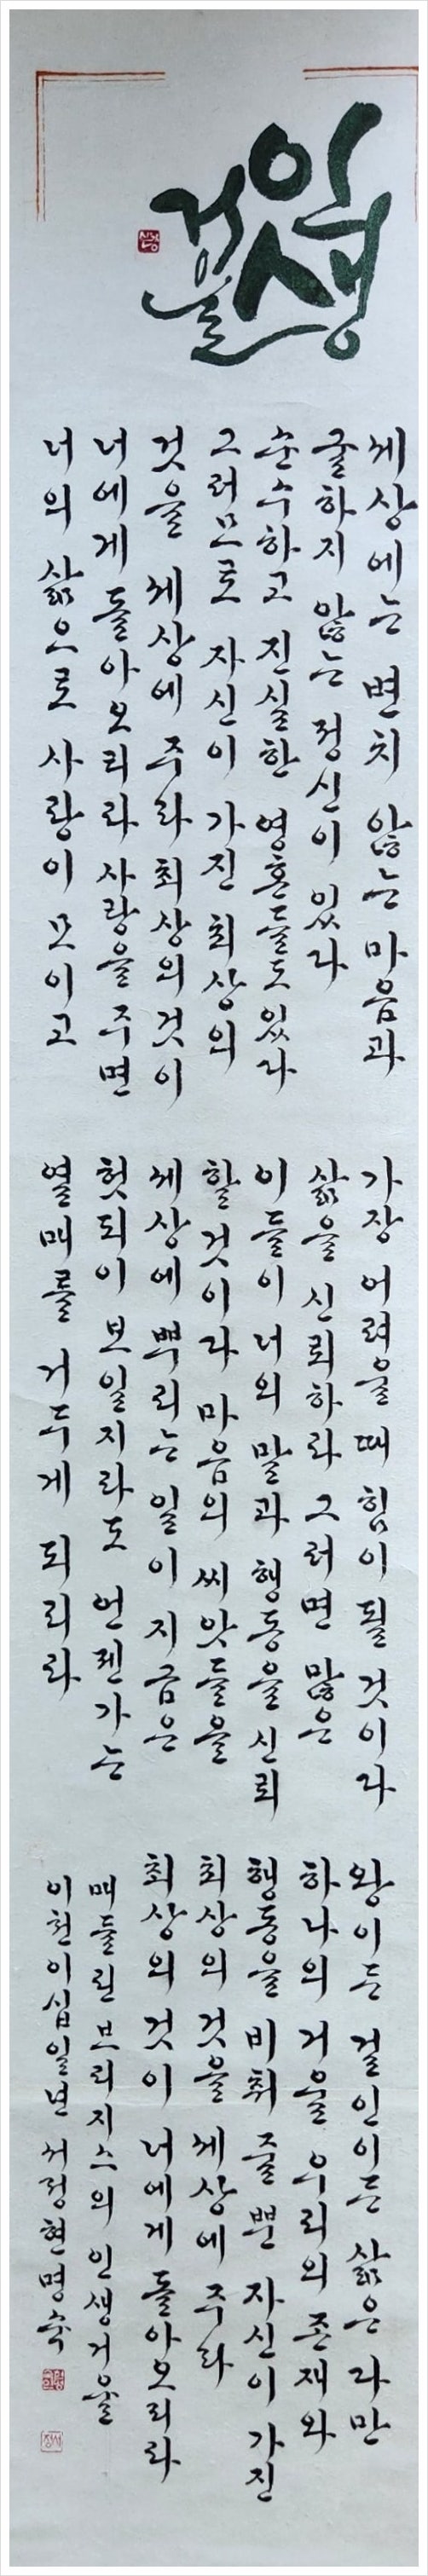 인생
거울
세상에는 변치 않는 마음과
굴하지 않는 정신이 있다
순수하고 진실한 영혼들도 있다
그러므로 자신이 가진 최상의
것을 세상에 주라 최상의 것이
너에게 돌아오리라 사랑을 주면
너의 삶으로 사랑이 모이고
가장 어려울 때 힘이 될 것이다
삶을 신뢰하라 그러면 많은
이들이 너의 말과 행동을 신뢰
할 것이다 마음의 씨앗들을
세상에 뿌리는 일이 지금은
헛되이 보일지라도 언젠가는
열매를 거두게 되리라
왕이든 걸인이든 삶은 다만
하나의 거울 우리의 존재와
행동을 비춰 줄 뿐 자신이 가진
최상의 것을 세상에 주라
최상의 것이 너에게 돌아오리라
매들린 브리지스의 인생거울
이천이십일년 서정현명숙